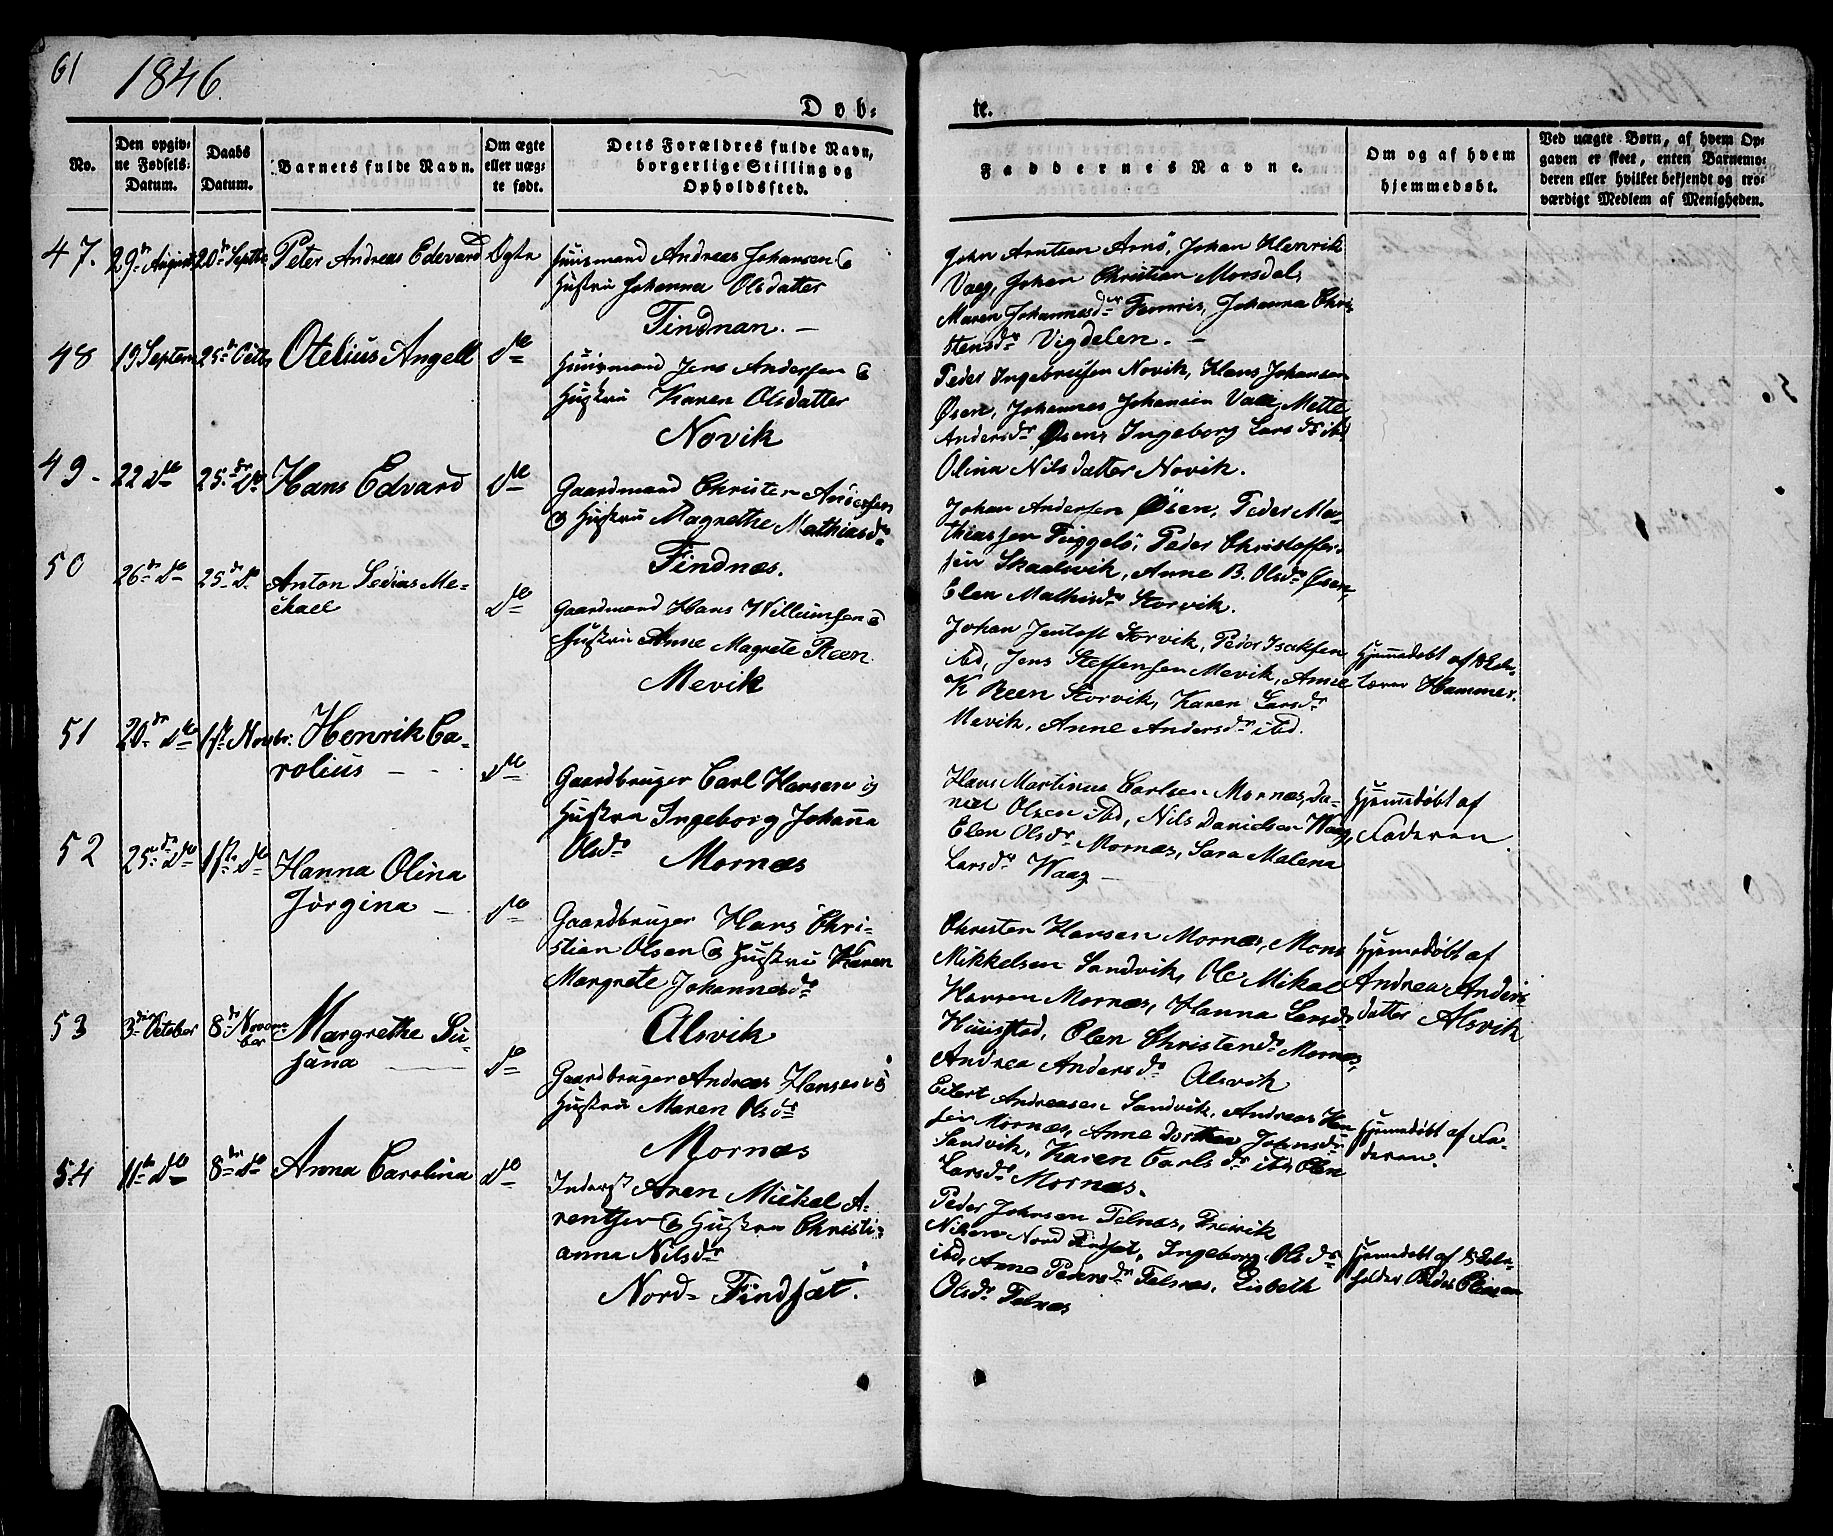 61
1846.
Døb-
te.
No.
Den opgiv-
ne Fødsels-
Datum.
Daabs
Datum.
Barnets fulde Navn.
Om ægte
eller uæg-
te født.
Dets Forældres fulde Navn,
borgerlige Stilling og
Opholdssted.
Faddernes Navne.
Om og af hvem
hjemmedøbt.
Ved uægte Børn, af hvem Op-
gaven er skeet, enten Barnemo-
deren eller hvilket bekjendt og tro-
værdigt Medlem af Menigheden.
47.
29de August
20de Septbr
Peter Andreas Edevard
Ægte
Huusmand Andreas Johansen &
Hustru Johanna Olsdatter
Findnan. —
John Arntsen Arnø, Johan Henrik
Vaag, Johan Christian Morsdal,
Maren Johannesdr Femris, Johanna Chri-
stensdr Vigdelen. —
48
19 Septem
25de Octbr
Otelius Angell
do
Huusmand Jens Andersen &
Hustru Karen Olsdatter
Novik
Peder Ingebrigtsen Novik, Hans Johansen
Øsen, Johannes Johansen Vaag, Mette
Andersdr Øsen, Ingeborg Larsdr ibd
Olina Nilsdatter Novik.
49.
22 do
25de do
Hans Edvard
do
Gaardmand Christen Andersen
& Hustru Magrethe Mathiasdr
Findnæs.
Johan Andersen Øsen, Peder Ma-
thiassen Fuggelø, Peder Christoffer-
sen Skaalsvik, Anne B. Olsdr Øsen,
Elen Mathisdr Storvik.
50
26de do
25de do
Anton Sedias Me-
ikael
do
Gaardmand Hans Willumsen &
Hustru Anne Magrete Reen
Mevik
Johan Jentoft Storvik, Peder Isaksen
ibd, Jens Steffensen Mevik, Anne
K Reen Storvik, Karen Larsdr
Mevik, Anne Andersdr ibd.
Hjemmedøbt af Skole-
lærer Hammer.
51
20de do
1ste Novbr.
Henrik Ca-
rolius —
do
Gaardbruger Carl Hansen og
Hustru Ingeborg Johanna
Olsdr Mornæs
Hans Martinus Carlsen Mornæs, Da-
niel Olsen ibd, Nils Danielsen Waag,
Elen Olsdr Mornæs, Sara Malena
Larsdr Waag —
Hjemmedøbt af
Faderen.
52
25de do
1ste do
Hanna Olina
Jørgina —
do
Gaardbruger Hans Chri-
stian Olsen & Hustru Karen
Margrete Johannesdr
Alsvik
Christen Hansen Mornæs, Mons
Mikkelsen Sandvik, Ole Mikal
Hansen Mornæs, Hanna Larsdr
Huustad, Elen Christensdr Mornæs,
Andrea Andersdr Alsvik
Hjemmedøbt af
Andrea Anders
datter Alsvik
53
3die October
8de Novem-
ber
Margrethe Su-
sana —
do
Gaardbruger Andreas Hansen &
Hustru Maren Olsdr
Mornæs
Eilert Andreasen Sandvik, Andreas Han
sen Mornæs, Anne Dorthea Johnsdr
Sandvik, Karen Carlsdr ibd, Elen
Larsdr Mornæs.
Hjemmedøbt af Fa-
deren.
54
11te do
8de do
Anna Carolina
do
Inderst Aren Mickel A-
rentsen & Hustru Christi-
anna Nilsdr
Nord-Findsæt.
Peder Johnsen Telnæs, Fredrik
Nilsen Nord Findsæt, Ingeborg Olsdr
ibd, Anne Pedersdr Telnæs, Lisbeth
Olsdr Telnæs
Hjemmedøbt af Skole-
holder Peder Olsen